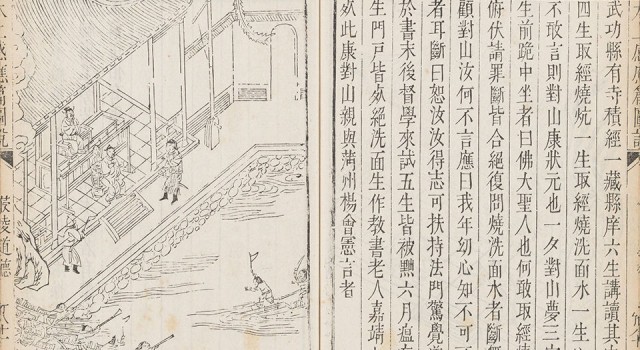 武功縣有寺積經一藏縣庠六生講讀其中
四生取經燒炕一生取經燒洗面水一生
不敢言則對山康狀元也一夕對山夢三
生前跪中坐者曰佛大聖人也何敢取經
俯伏請罪斷皆合絕復問燒洗面水者斷
顧對山汝何不言應曰我年幼心知不可
者耳斷曰恕汝汝得志可扶持法門驚覺
於書末後督學來試五生皆被黜六月瘟
生門戸皆歿絕洗面生作教書老人嘉靖
歿此康對山親與荊州楊會憲言者
感應篇圖說
陵道德